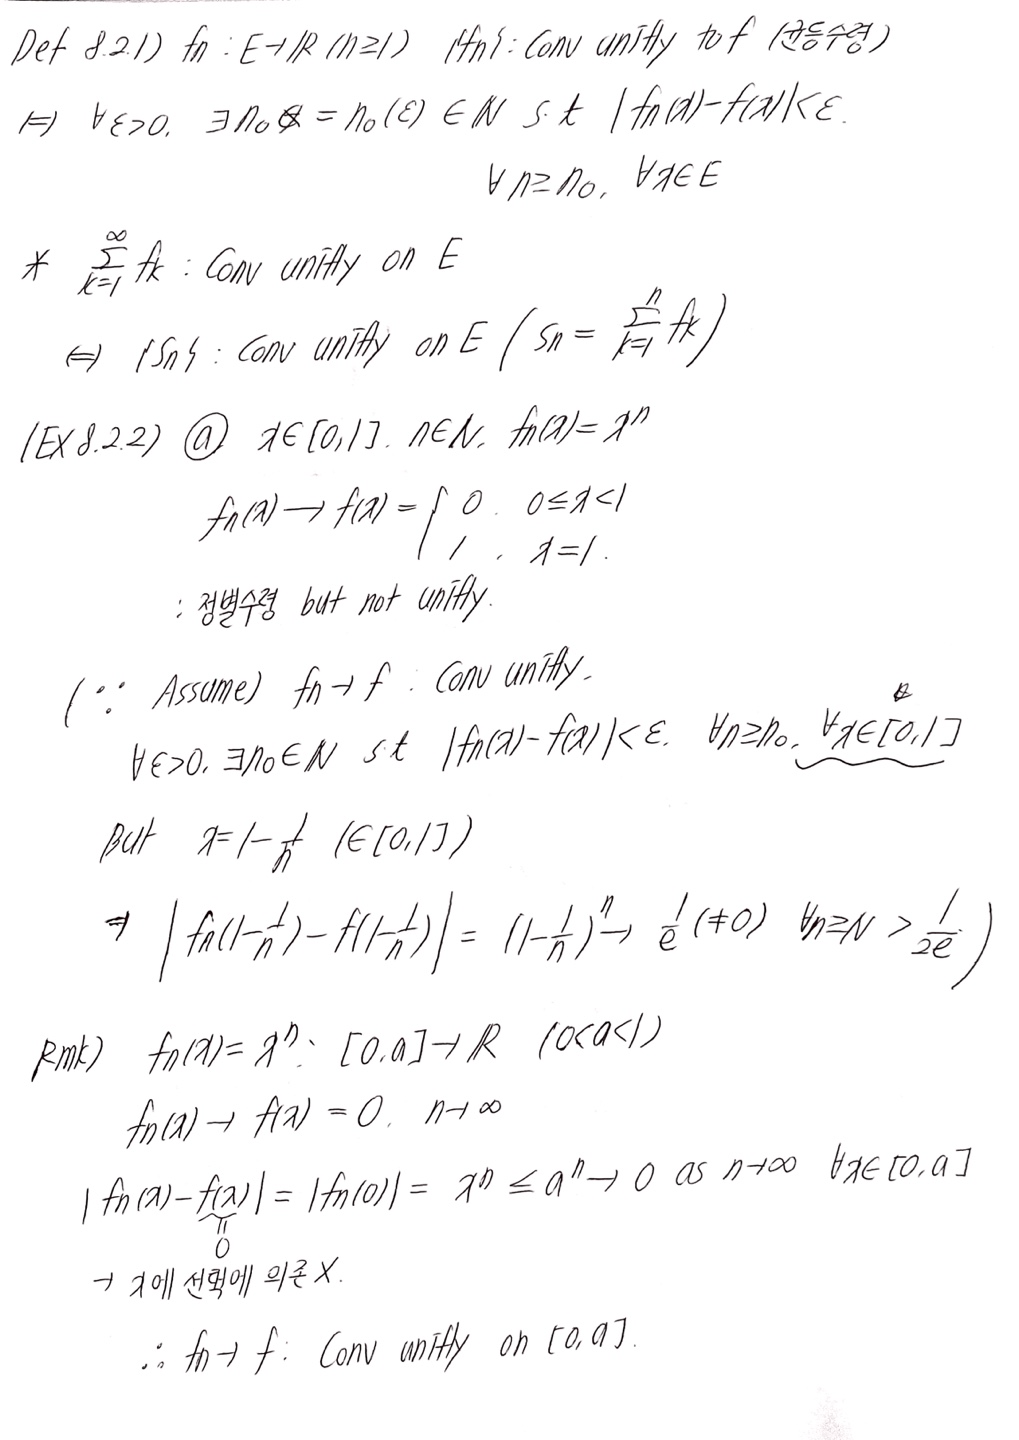 Def 8.2.1) fn : E→ℝ (n≥1) {fn} : Conv unifly to f (균등수렴)
⇔ ∀ε>0, ∃n₀ = n₀(ε) ∈ ℕ s.t |fn(x)-f(x)|<ε.
∀n≥n₀, ∀x∈E
* ∑_{k=1}^{∞} fk : Conv unifly on E
⇔ {Sn} : Conv unifly on E (Sn = ∑_{k=1}^{n} fk)
(EX 8.2.2) ⓐ x∈[0,1], n∈N, fn(x) = xⁿ
fn(x) → f(x) = { 0, 0≤x<1
1, x=1.
: 점별수렴 but not unifly.
(∵ Assume) fn→f : Conv unifly.
∀ε>0, ∃n₀∈ℕ s.t |fn(x)-f(x)|<ε, ∀n≥n₀, ∀x∈[0,1]
But x=1-1/n (∈[0,1])
⇒ |fn(1-1/n)-f(1-1/n)| = (1-1/n)ⁿ → 1/e (≠0) ∀n≥N > 1/2e)
Rmk) fn(x) = xⁿ : [0,a]→ℝ (0<a<1)
fn(x) → f(x) = 0, n→∞
|fn(x)-f(x)| = |fn(0)| = xⁿ ≤ aⁿ → 0 as n→∞ ∀x∈[0,a]
=
0
→ x에 선택에 의존 X.
∴ fn→f : Conv unifly on [0,a].